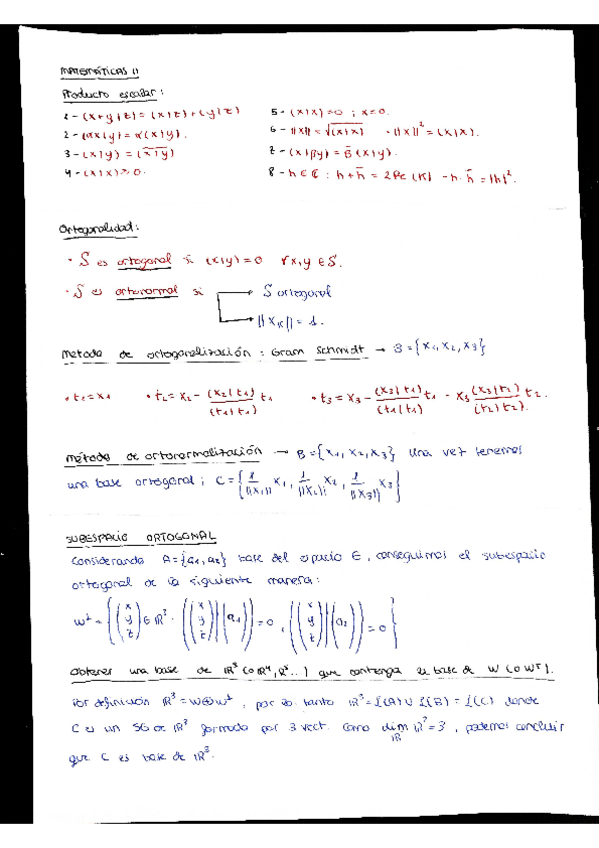 MATEMÁTICAS II
Producto escalar:
1- (x+y|z) = (x|z) + (y|z)
2- (αx|y) = α(x|y).
3- (x|y) = (x|y)‾
4- (x|x) ≥ 0.
5- (x|x) = 0 ; x=0.
6- ||x|| = √(x|x) - ||x||² = (x|x).
7- (x|βy) = β̄ (x|y).
8- h ∈ ℂ : h + h̄ = 2Re (h) - h · h̄ = |h|².
Ortogonalidad:
· S es ortogonal si (x|y) = 0 ∀x,y ∈ S.
· S es ortonormal si → S ortogonal
→ ||x_k|| = 1.
Metodo de ortogonalización : Gram Schmidt → B = {x₁, x₂, x₃}
· t₁ = x₁ · t₂ = x₂ - (x₂|t₁)/(t₁|t₁) t₁ · t₃ = x₃ - (x₃|t₁)/(t₁|t₁) t₁ - x₃ (x₃|t₂)/(t₂|t₂) t₂.
Método de ortonormalización → B = {x₁, x₂, x₃} Una vez tenemos
una base ortogonal ; C = {1/||x₁|| x₁, 1/||x₂|| x₂, 1/||x₃|| x₃}
SUBESPACIO ORTOGONAL
Considerando A = {a₁, a₂} base del espacio E, conseguimos el subespacio
ortogonal de la siguiente manera:
W⊥ = { (x y z) ∈ ℝ³ · ((x y z)|(a₁)) = 0 , ((x y z)|(a₂)) = 0 }
Obtener una base de ℝ³ (o ℝ⁴, ℝ⁵...) que contenga base de W (o W⊥).
Por definición ℝ³ = W⊕W⊥ , por lo tanto ℝ³ = L(A) ∪ L(B) = L(C) donde
C es un SG de ℝ³ formado por 3 vect. Como dim ℝ ℝ³ = 3 , podemos concluir
que C es base de ℝ³.